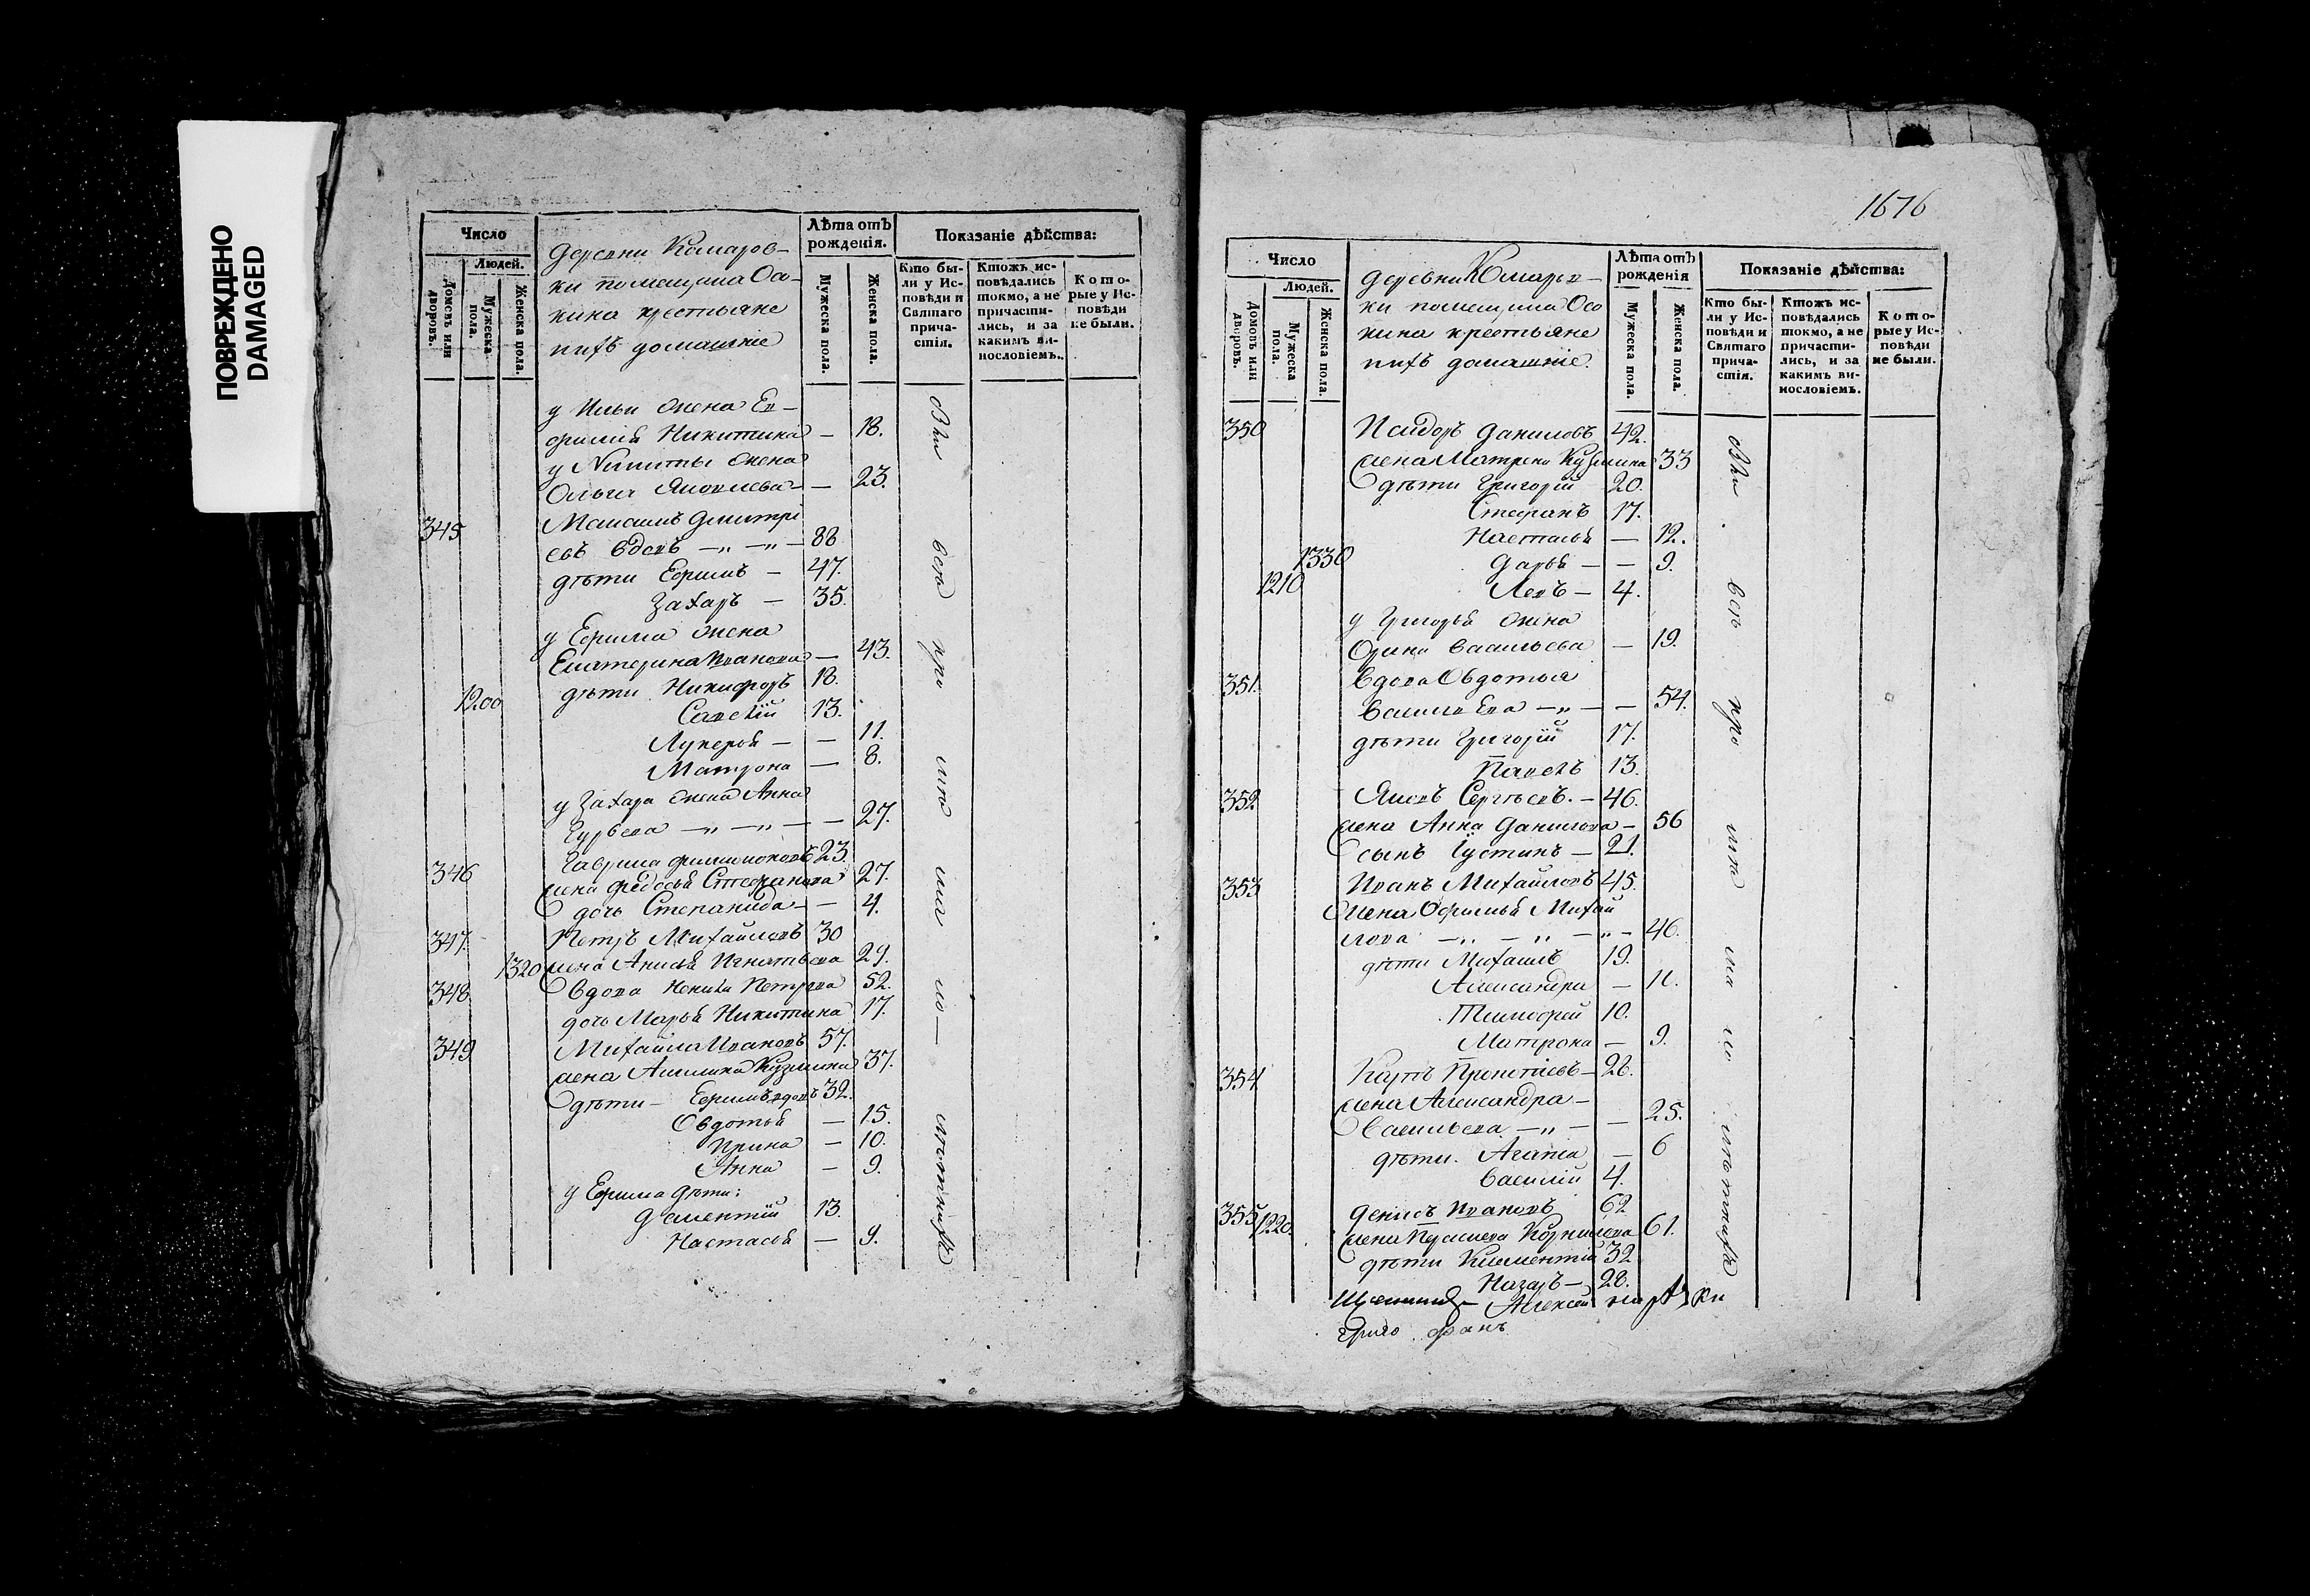 ПОВРЕЖДЕНО
DAMAGED
Число
Людей.
Домовъ или дворовъ.
Мужеска пола.
Женска пола.
деревни Комаров-
ки помещика Оса-
кина крестьяне
ихъ домашніе
Лѣта отъ рожденія.
Мужеска пола.
Женска пола.
Показаніе дѣйства:
Кто бы-
ли у Ис-
повѣди и
Святаго
прича-
стія.
Ктожъ ис-
повѣдались
токмо, а не
причасти-
лись, и за
какимъ ви-
нословіемъ.
Кото-
рые у Ис-
повѣди
не были.
у Ильи жена Ев-
фимія Никитина — 18.
у Никиты жена
Ольга Яковлева — 23.
345 Максимъ Дмитрі
евъ вдовъ —„ —„ — 88
дѣти Ефимъ — 47.
Захаръ — 35.
у Ефима жена
Екатерина Иванова — 43.
1200 дѣти Никифоръ 18.
Савелій 13.
Лукерья — — 11.
Матрона — 8.
у Захара жена Анна
Гурьева —„ —„ — — 27.
346 Гаврила Филимоновъ 23.
жена Федосья Стефанова 27.
дочь Степанида — — 4.
347. Петръ Михайловъ 30
1320 жена Анисья Игнатьева 29.
348 Вдова Петрова 52.
дочь Марья Никитина 17.
349 Михайла Ивановъ 57.
жена Акилина Кузмина 37.
дѣти — Ефимъ вдовъ 32.
Овдотья — 15.
Ирина — 10.
Анна — 9.
у Ефима дѣти:
Дементій 13.
Настасья — 9.
1676
Число
Людей.
Домовъ или дворовъ.
Мужеска пола.
Женска пола.
деревни Комаров-
ки помещика Осо
кина крестьяне
ихъ домашніе.
Лѣта отъ рожденія
Мужеска пола.
Женска пола.
Показаніе дѣйства:
Кто бы-
ли у Ис-
повѣди и
Святаго
прича-
стія.
Ктожъ ис-
повѣдались
токмо, а не
причасти-
лись, и за
какимъ ви-
нословіемъ.
Кото-
рые у Ис-
повѣди
не были.
350 Исидоръ Даниловъ 42.
жена Матрена Кузмина 33
дѣти Григорій 20.
Стефанъ 17.
Настасья — 12.
1330 Дарья — — 9.
1210 Левъ — 4.
у Григорья жена
Орина Васильева — 19.
351. Вдова Овдотья
Василь Ева —„ — — 54.
дѣти Григорій 17.
Павелъ 13.
352 Яковъ Сергѣевъ. — 46.
жена Анна Данилова — 56
сынъ Іустинъ — 21.
353 Иванъ Михайловъ 45.
жена Офимья Михай
лова —„ — „ — „ — 46.
дѣти Михаилъ 19.
Александра — 11.
Тимофей 10.
Матрона — 9.
354 Карпъ Прокопіевъ — 26.
жена Александра —
Васильева —„ — — 25.
дѣти. Агапія — 6
Василій 4.
355 1220. Денисъ Ивановъ 62
жена Корнилова 61.
дѣти Климентій 32
Назаръ — 28.
Алексей